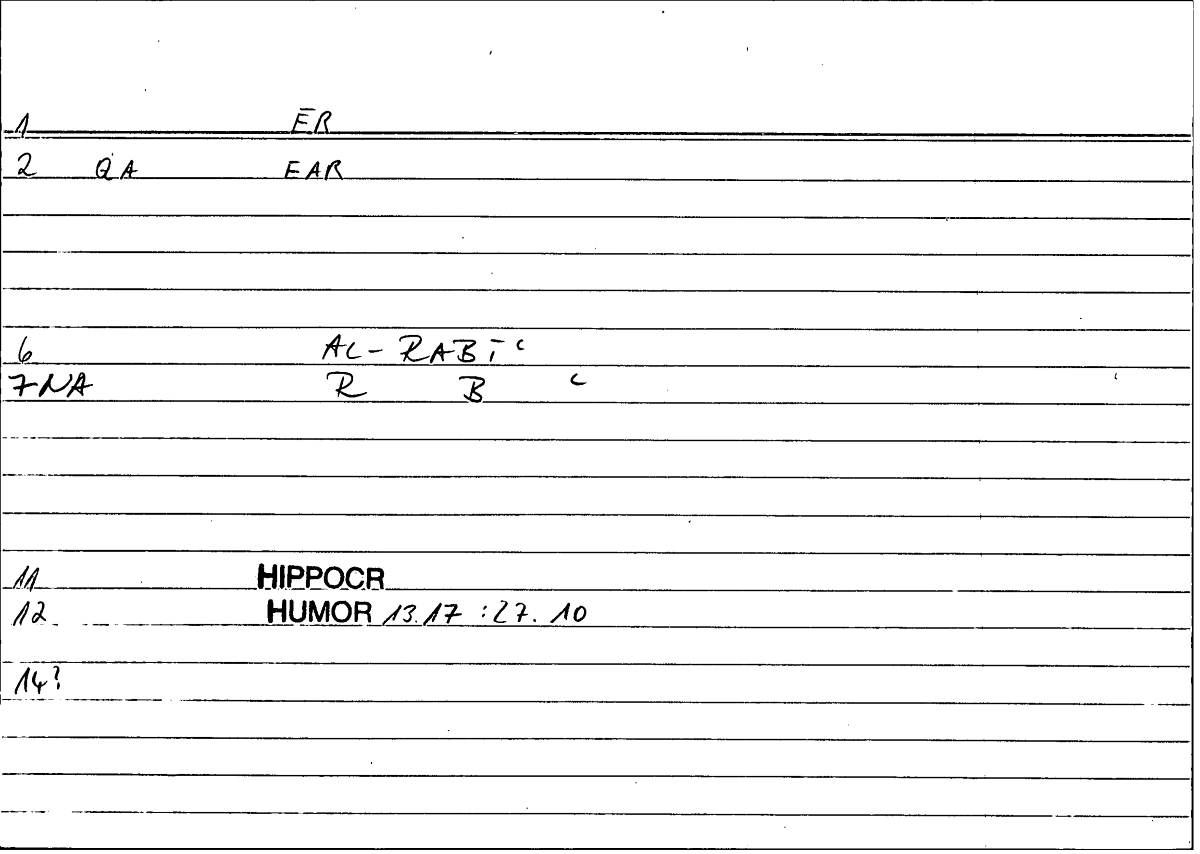 1 ĒR
2 QA EAR
6 AL-RABĪʿ
7 NA R B ʿ
11 HIPPOCR
12 HUMOR 13.17 :27.10
14?